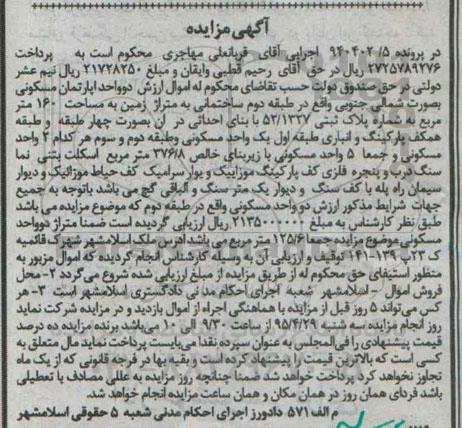 آگهی مزایده
در پرونده ۹۴۰۴۰۲/۵ اجرایی آقای قربانعلی مهاجری محکوم است به پرداخت
۲۷۲۵۷۸۹۲۷۶ ریال در حق آقای رحیم قطبی وایقان و مبلغ ۲۱۷۲۸۲۵۰ ریال نیم عشر
دولتی در حق صندوق دولت حسب تقاضای محکوم له اموال ارزش دوواحد اپارتمان مسکونی
بصورت شمالی جنوبی واقع در طبقه دوم ساختمانی به متراژ زمین به مساحت ۱۶۰ متر
مربع به شماره پلاک ثبتی ۵۲/۱۳۲۷ با بنای احداثی در ان بصورت چهار طبقه و طبقه
همکف پارکینگ و انباری طبقه اول یک واحد مسکونی وطبقه دوم و سوم هر کدام ۲ واحد
مسکونی و جمعا ۵ واحد مسکونی با زیربنای خالص ۳۷۶/۸ متر مربع اسکلت بتنی نما
سنگ درب و پنجره فلزی کف پارکینگ موزاییک و یوار سرامیک کف حیاط موزائیک و دیوار
سیمان راه پله با کف سنگ و دیوار یک متر سنگ و الباقی گچ می باشد باتوجه به جمیع
جهات شرایط مذکور ارزش دو واحد مسکونی واقع در طبقه دوم که موضوع مزایده می باشد
طبق نظر کارشناس به مبلغ ۲۱۳۵۰۰۰۰۰۰ ریال ارزیابی گردیده است ضمنا متراژ دوواحد
مسکونی موضوع مزایده جمعا ۱۲۵/۶ متر مربع می باشد ادرس ملک اسلامشهر شهرک قائمیه
ک ۲۳پ ۱۳۹-۱۴۱ توقیف و ارزیابی آن به وسیله کارشناس انجام گردیده که اموال مزبور به
منظور استیفای حق محکوم له از طریق مزایده از مبلغ ارزیابی شده شروع می گردد ۲- محل
فروش اموال - اسلامشهر شعبه اجرای احکام مدنی دادگستری اسلامشهر است ۳- هر
کس می تواند ۵ روز قبل از مزایده با هماهنگی اجراء از اموال بازدید و در مزایده شرکت نماید
روز انجام مزایده سه شنبه ۹۵/۴/۲۹ از ساعت ۹/۳۰ الی ۱۰ می باشد برنده مزایده ده درصد
قیمت پیشنهادی را فی المجلس به عنوان سپرده نقدا می بایست پرداخت نماید مال متعلق به
کسی است که بالاترین قیمت را پیشنهاد کرده است و بقیه بها در فرجه قانونی که از یک ماه
تجاوز نخواهد کرد پرداخت خواهد شد ضمنا چنانچه روز مزایده به عللی مصادف با تعطیلی
باشد فردای همان روز در همان مکان و همان ساعت مزایده انجام خواهد شد.
م الف ۵۷۱ دادورز اجرای احکام مدنی شعبه ۵ حقوقی اسلامشهر